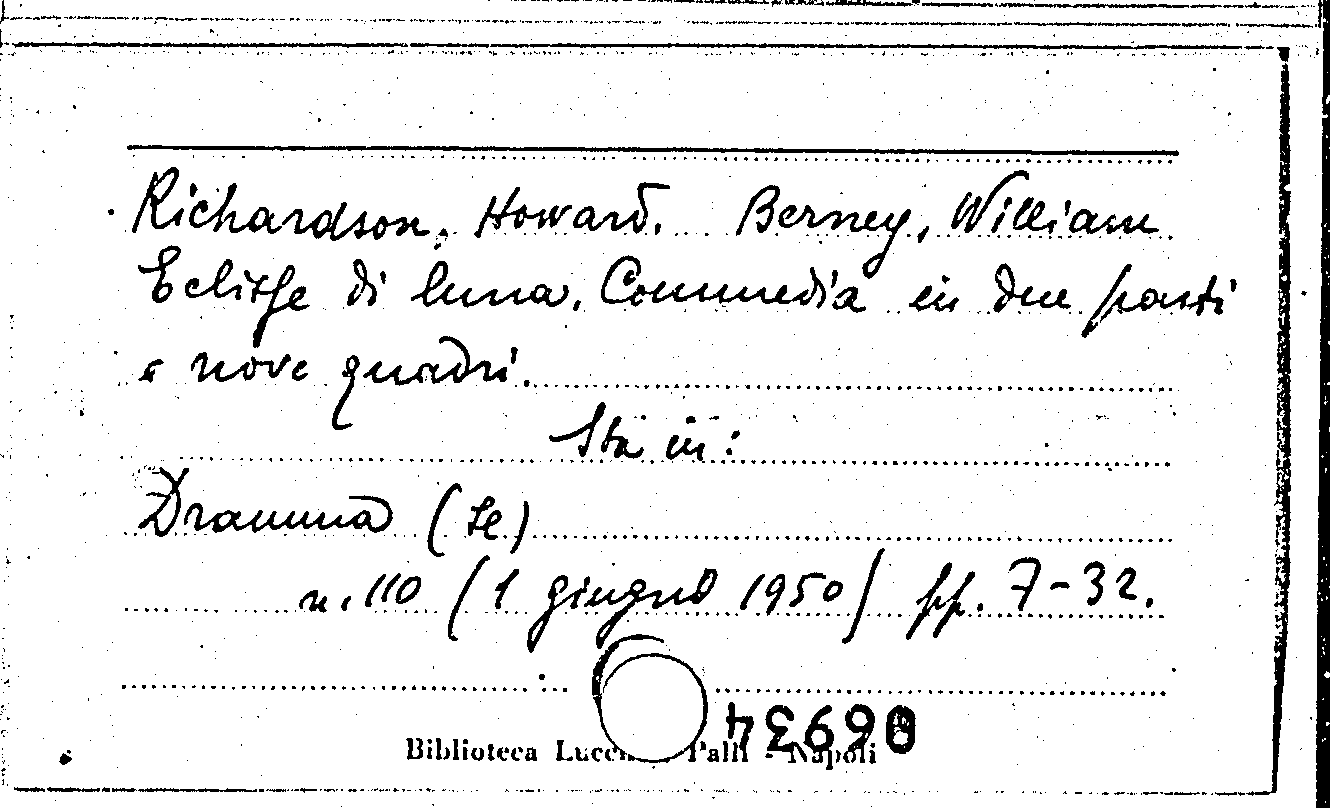 Richardson, Howard. Berney, William
Eclisse di luna. Commedia in due parti
e nove quadri.
Sta in:
Dramma (Il)
n. 110 (1 giugno 1950) pp. 7-32.
Biblioteca Palli - Napoli